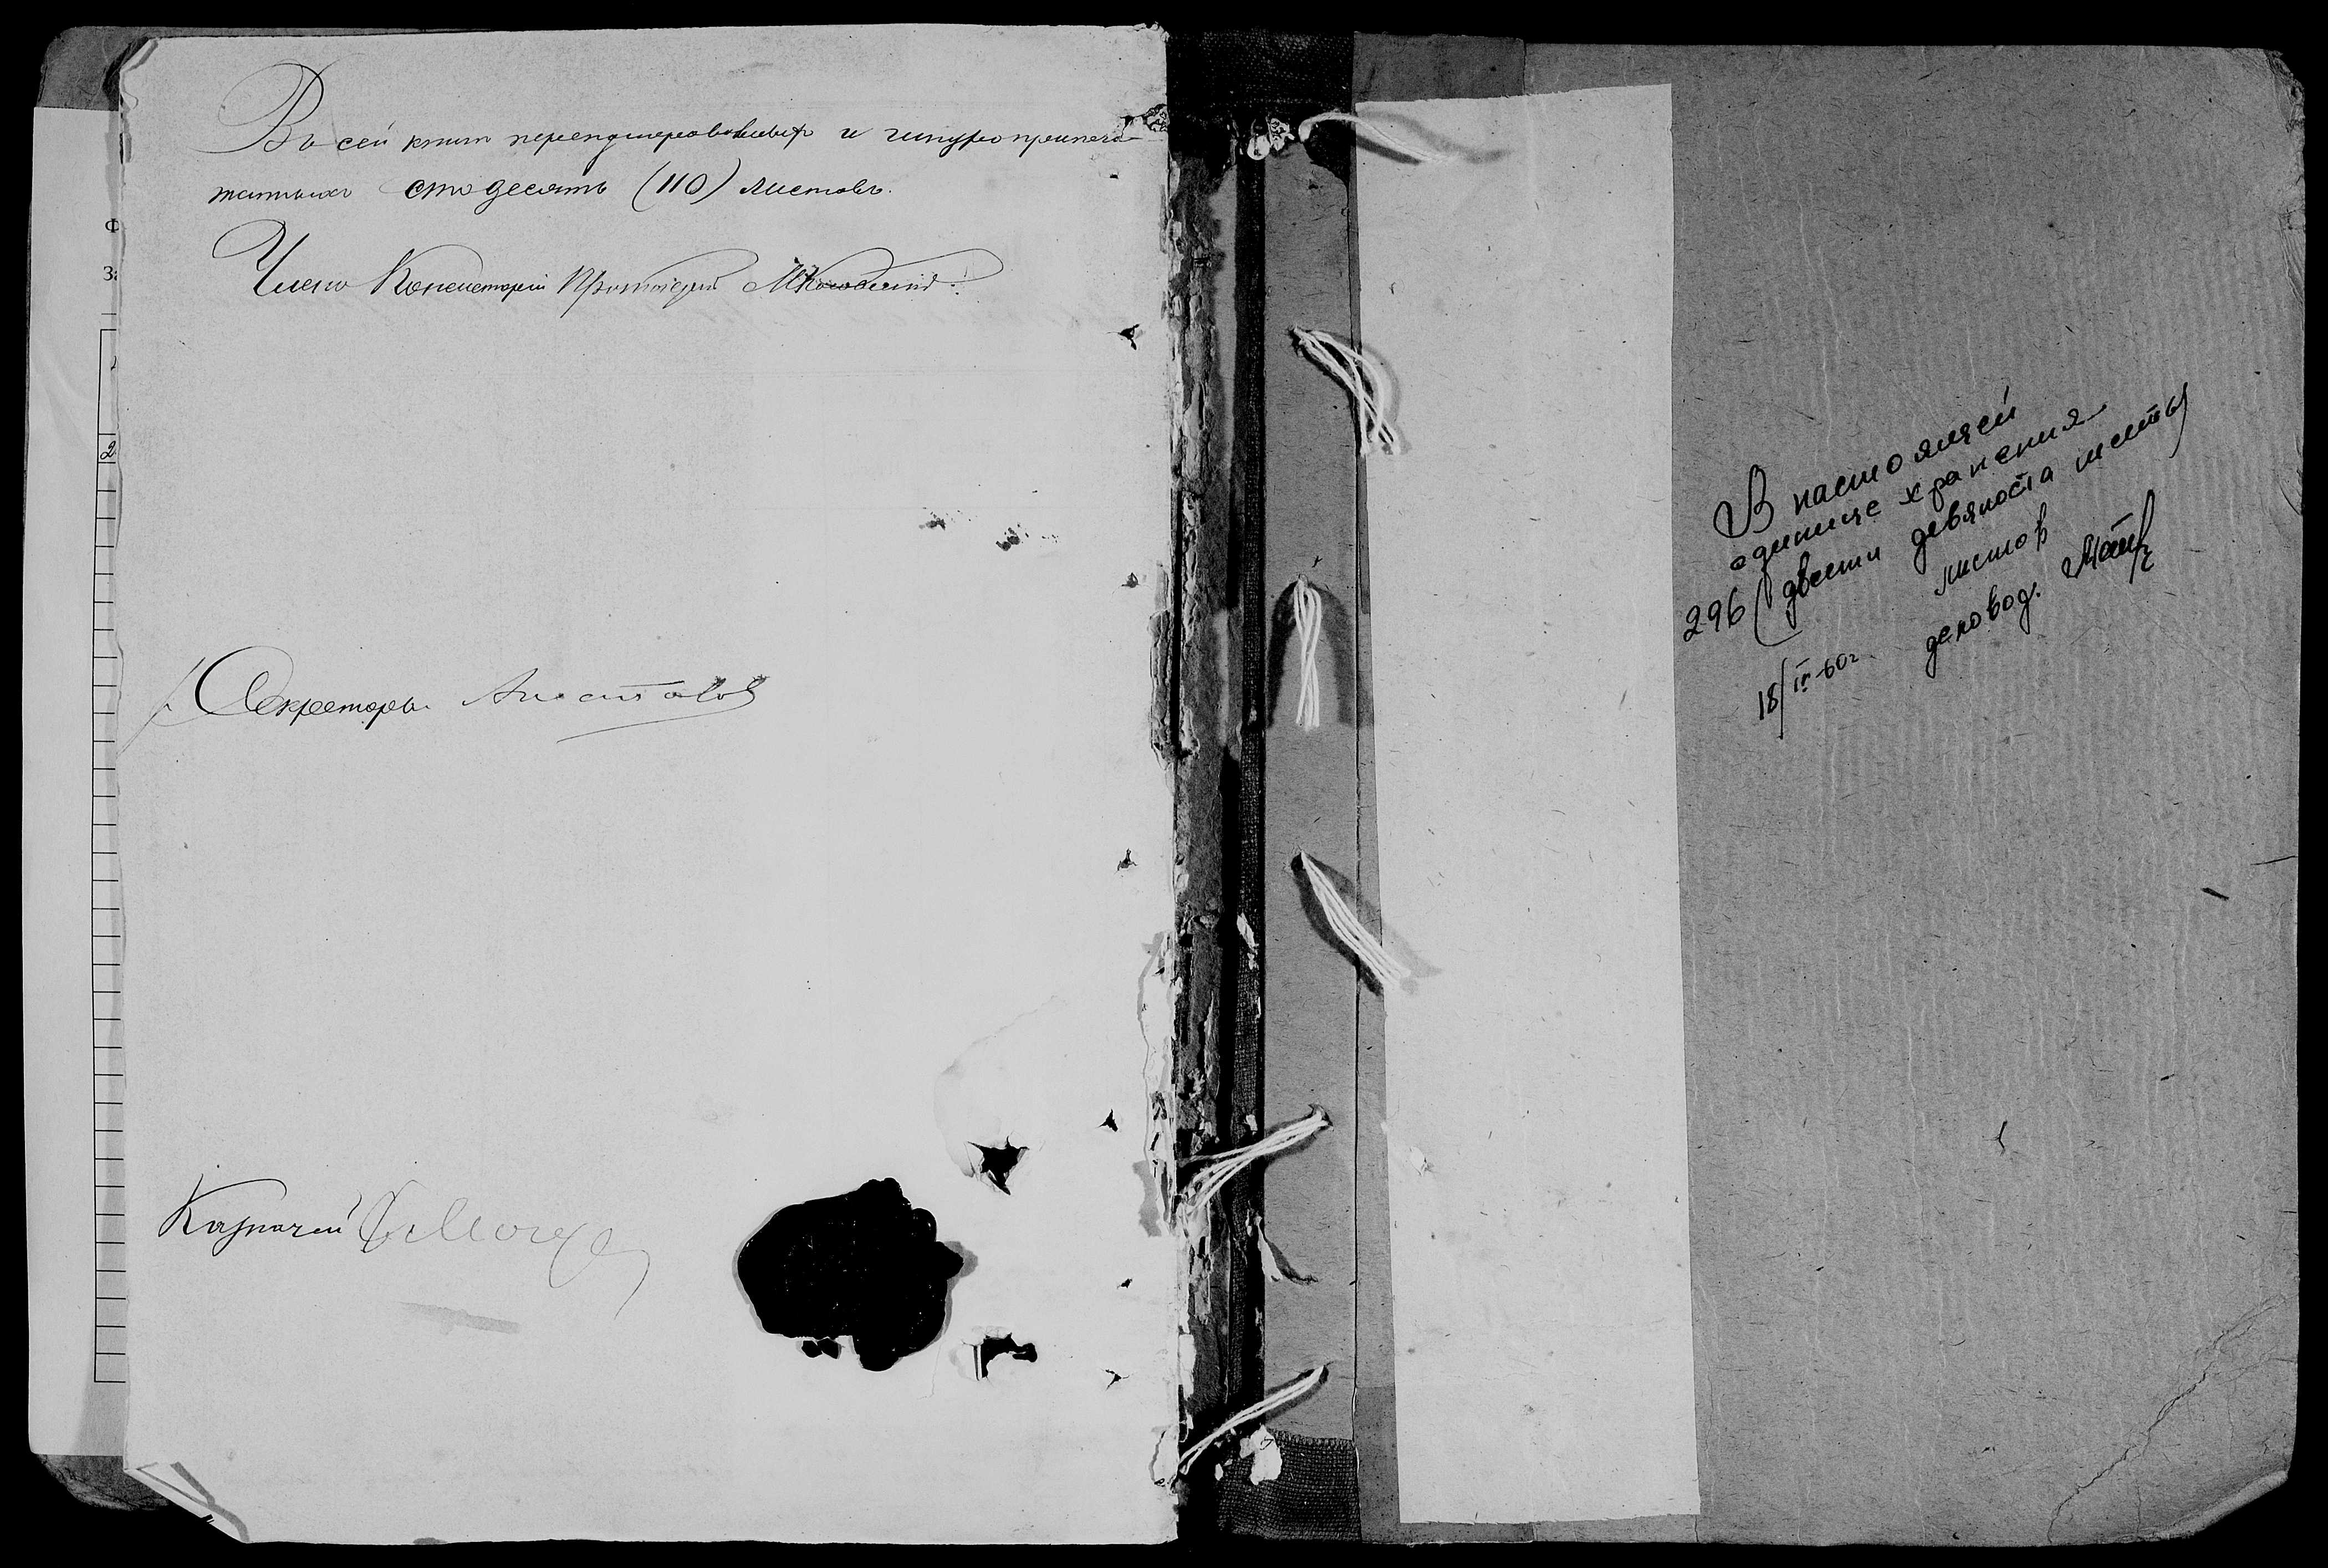 Въ сей книгѣ перенумерованныхъ и шнуроприпеча-
танныхъ сто десять (110) листовъ.
Членъ Консисторіи Протоіерей
Секретарь
Казначей
В настоящей
единице хранения
296 (двести девяноста шесть)
листов
18/IV-60г. деловод.
Ф
За
2